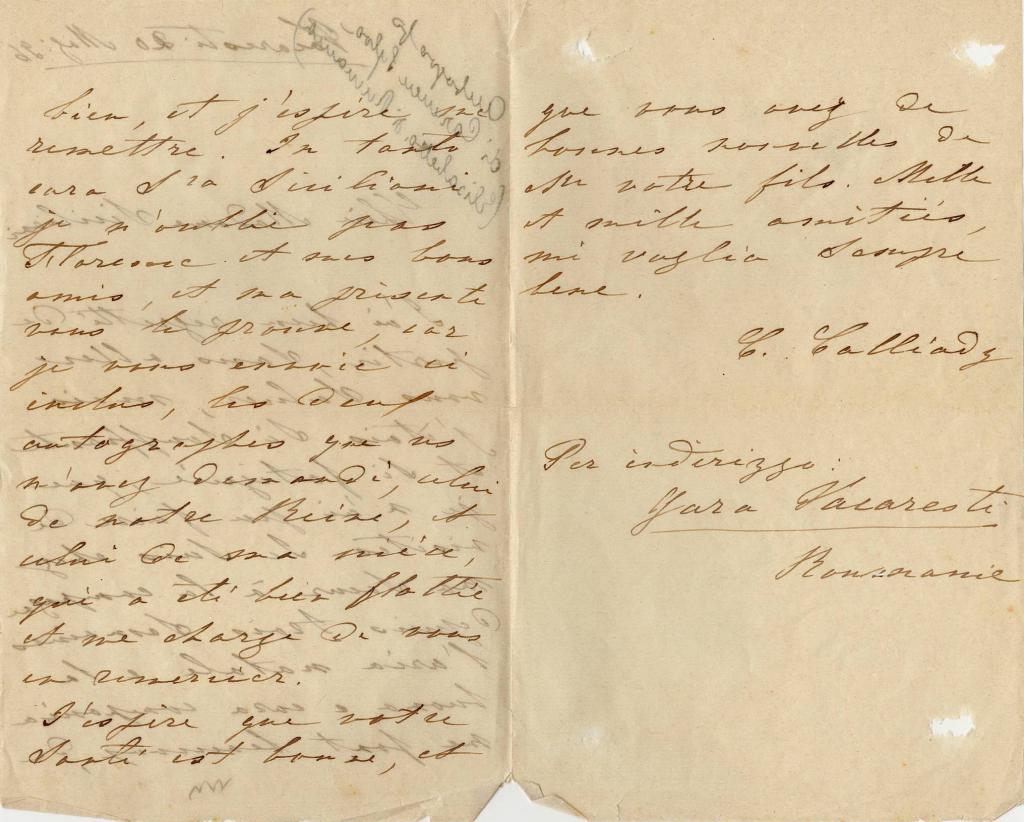 bien, et j'espère me
remettre. In tanto
cara S.ra Siciliani
je n'oublie pas
Florence et mes bons
amis, et ma présente
vous le prouve, car
je vous envoie ci
inclus, les deux
autographes que vs
m'avez demandé, celui
de notre Reine, et
celui de ma mère,
qui a été bien flattée
et me charge de vous
en remercier.
J'espère que votre
santé est bonne, et
que vous avez de
bonnes nouvelles de
Mr votre fils. Mille
et mille amitiés,
mi voglia sempre
bene.
C. Calliady
Per inderizzo:
Gara Vacaresti
Roumanie